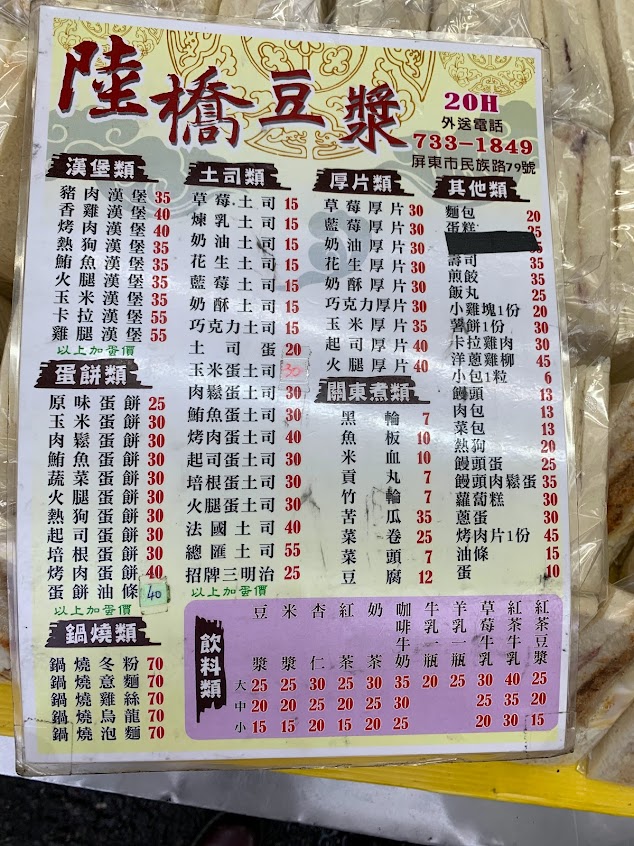 陸橋豆漿
20H
外送電話
733-1849
屏東市民族路79號
漢堡類
豬肉漢堡 35
香雞漢堡 40
烤肉漢堡 40
熱狗漢堡 35
鮪魚漢堡 35
火腿漢堡 35
玉米漢堡 35
卡拉漢堡 55
雞腿漢堡 55
以上加蛋價
蛋餅類
原味蛋餅 25
玉米蛋餅 30
肉鬆蛋餅 30
鮪魚蛋餅 30
蔬菜蛋餅 30
火腿蛋餅 30
熱狗蛋餅 30
起司蛋餅 30
培根蛋餅 30
烤肉蛋餅 40
蛋餅油條 40
以上加蛋價
鍋燒類
鍋燒冬粉 70
鍋燒意麵 70
鍋燒雞絲 70
鍋燒烏龍 70
鍋燒泡麵 70
土司類
草莓土司 15
煉乳土司 15
奶油土司 15
花生土司 15
藍莓土司 15
奶酥土司 15
巧克力土司 15
土司蛋 20
玉米蛋土司 30
肉鬆蛋土司 30
鮪魚蛋土司 30
烤肉蛋土司 40
起司蛋土司 30
培根蛋土司 30
火腿蛋土司 30
法國土司 40
總匯土司 55
招牌三明治 25
以上加蛋價
厚片類
草莓厚片 30
藍莓厚片 30
奶油厚片 30
花生厚片 30
奶酥厚片 30
巧克力厚片 30
玉米厚片 35
起司厚片 40
火腿厚片 40
關東煮類
黑輪 7
魚板 10
米血 10
貢丸 7
竹輪 7
苦瓜 35
菜卷 25
菜頭 7
豆腐 12
其他類
麵包 20
蛋糕
壽司 35
煎餃 35
飯丸 25
小雞塊1份 20
薯餅1份 30
卡拉雞肉 30
洋蔥雞柳 45
小包1粒 6
饅頭 13
肉包 13
菜包 13
熱狗 20
饅頭蛋 25
饅頭肉鬆蛋 35
蘿蔔糕 30
蔥蛋 30
烤肉片1份 45
油條 15
蛋 10
飲料類
豆漿 米漿 杏仁 紅茶 奶茶 咖啡牛奶 牛乳一瓶 羊乳一瓶 草莓牛乳 紅茶牛乳 紅茶豆漿
大 25 25 30 25 30 35 20 25 30 40 25
中 20 20 25 20 25 30 25 35 20
小 15 15 20 15 20 25 20 30 15